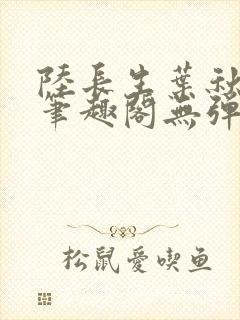 陸長生葉秋
筆趣閣無彈
松鼠愛喫鱼